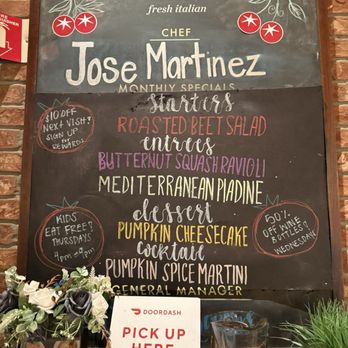 fresh italian
CHEF
Jose Martinez
MONTHLY SPECIALS
starters
ROASTED BEET SALAD
entrees
BUTTERNUT SQUASH RAVIOLI
MEDITERRANEAN PIADINE
dessert
PUMPKIN CHEESECAKE
cocktail
PUMPKIN SPICE MARTINI
GENERAL MANAGER
$10 OFF
NEXT VISIT?
SIGN UP
FOR
REWARDS
KIDS
EAT FREE?
THURSDAYS
50%
OFF WINE
BOTTLES?
WEDNESDAY
DOORDASH
PICK UP
HERE